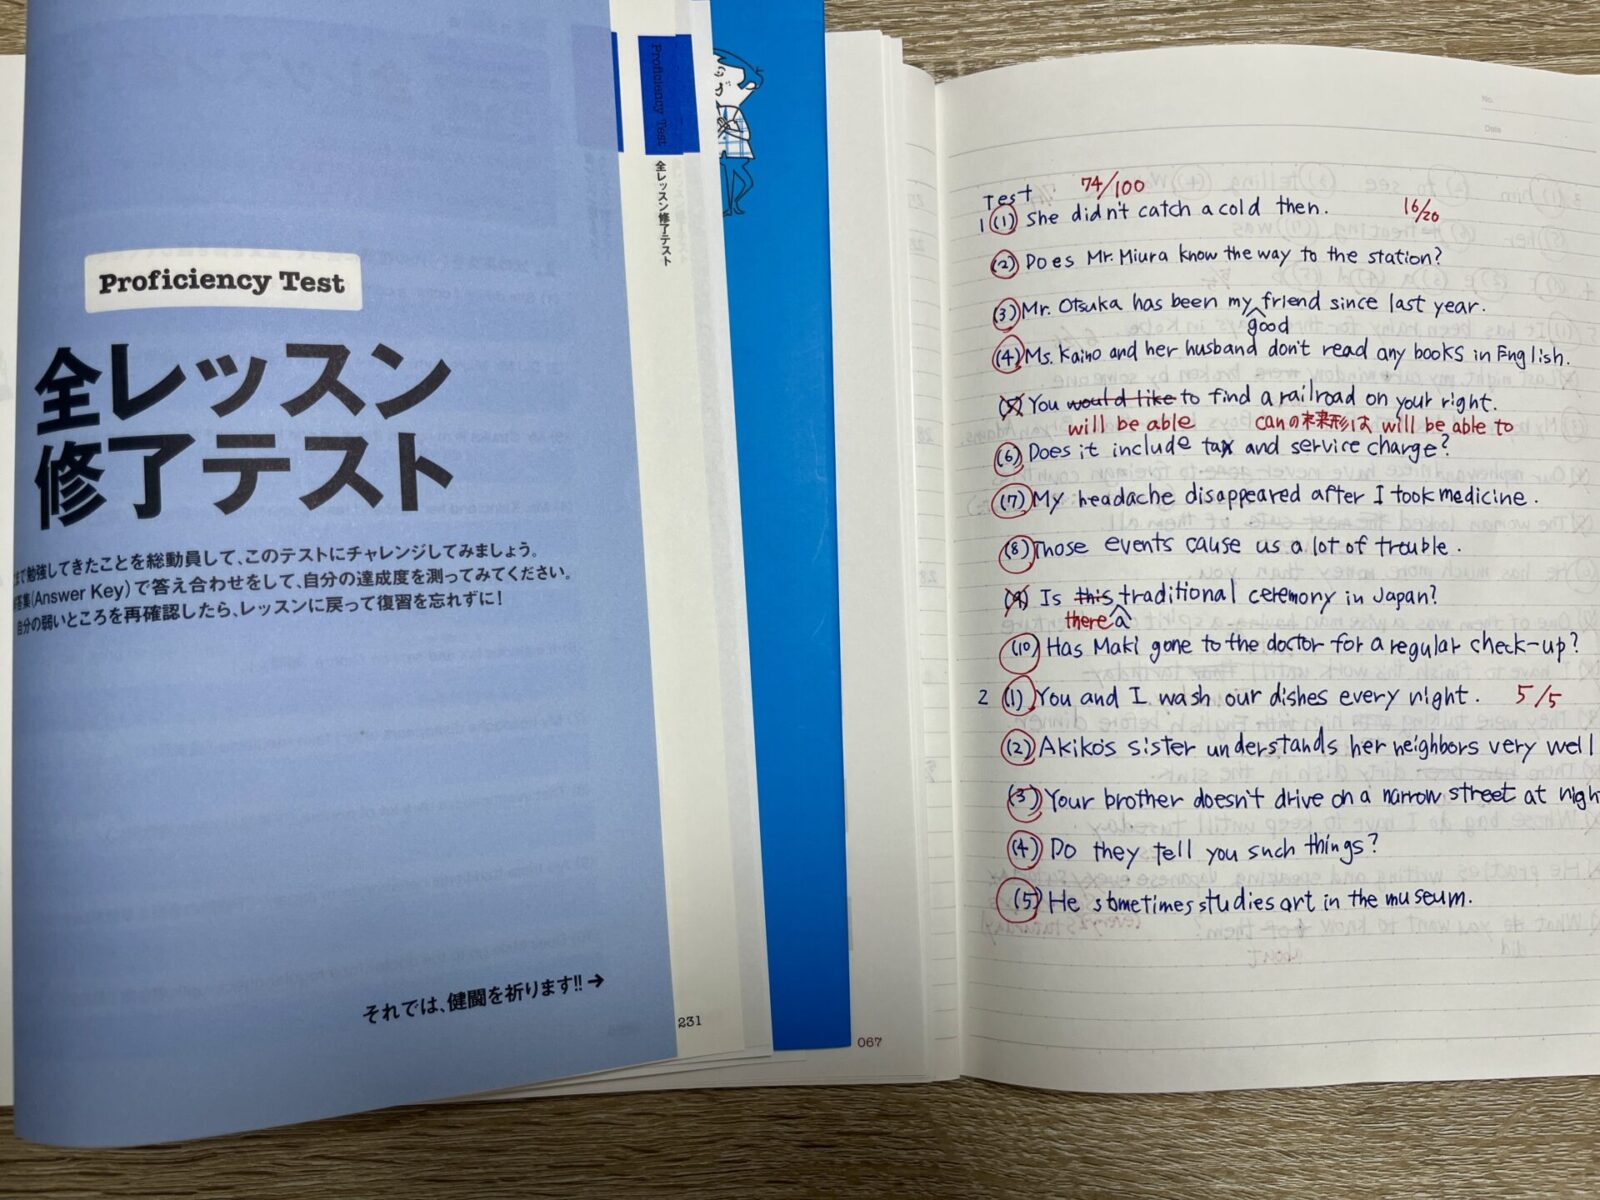 Proficiency Test
全レッスン
修了テスト
勉強してきたことを総動員して、このテストにチャレンジしてみましょう。
答集(Answer Key)で答え合わせをして、自分の達成度を測ってみてください。
自分の弱いところを再確認したら、レッスンに戻って復習を忘れずに!
それでは、健闘を祈ります!!→
Proficiency Test
全レッスン修了テスト
231
067
No.
Date
Test 74/100
1 (1) She didn't catch a cold then. 16/20
(2) Does Mr. Miura know the way to the station?
(3) Mr. Otsuka has been my friend since last year.
good
(4) Ms. Kaino and her husband don't read any books in English.
(5) You would like to find a railroad on your right.
will be able canの未来形は will be able to
(6) Does it include tax and service charge?
(7) My headache disappeared after I took medicine.
(8) Those events cause us a lot of trouble.
(9) Is this traditional ceremony in Japan?
there a
(10) Has Maki gone to the doctor for a regular check-up?
2 (1) You and I wash our dishes every night. 5/5
(2) Akiko's sister understands her neighbors very well
(3) Your brother doesn't drive on a narrow street at nigh
(4) Do they tell you such things?
(5) He sometimes studies art in the museum.